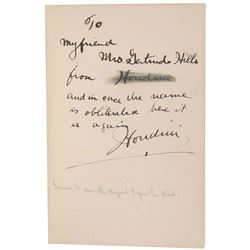 To
my friend
Mrs Gertrude Hills
from Houdini
and in case the name
is obliterated here it
is again
Houdini